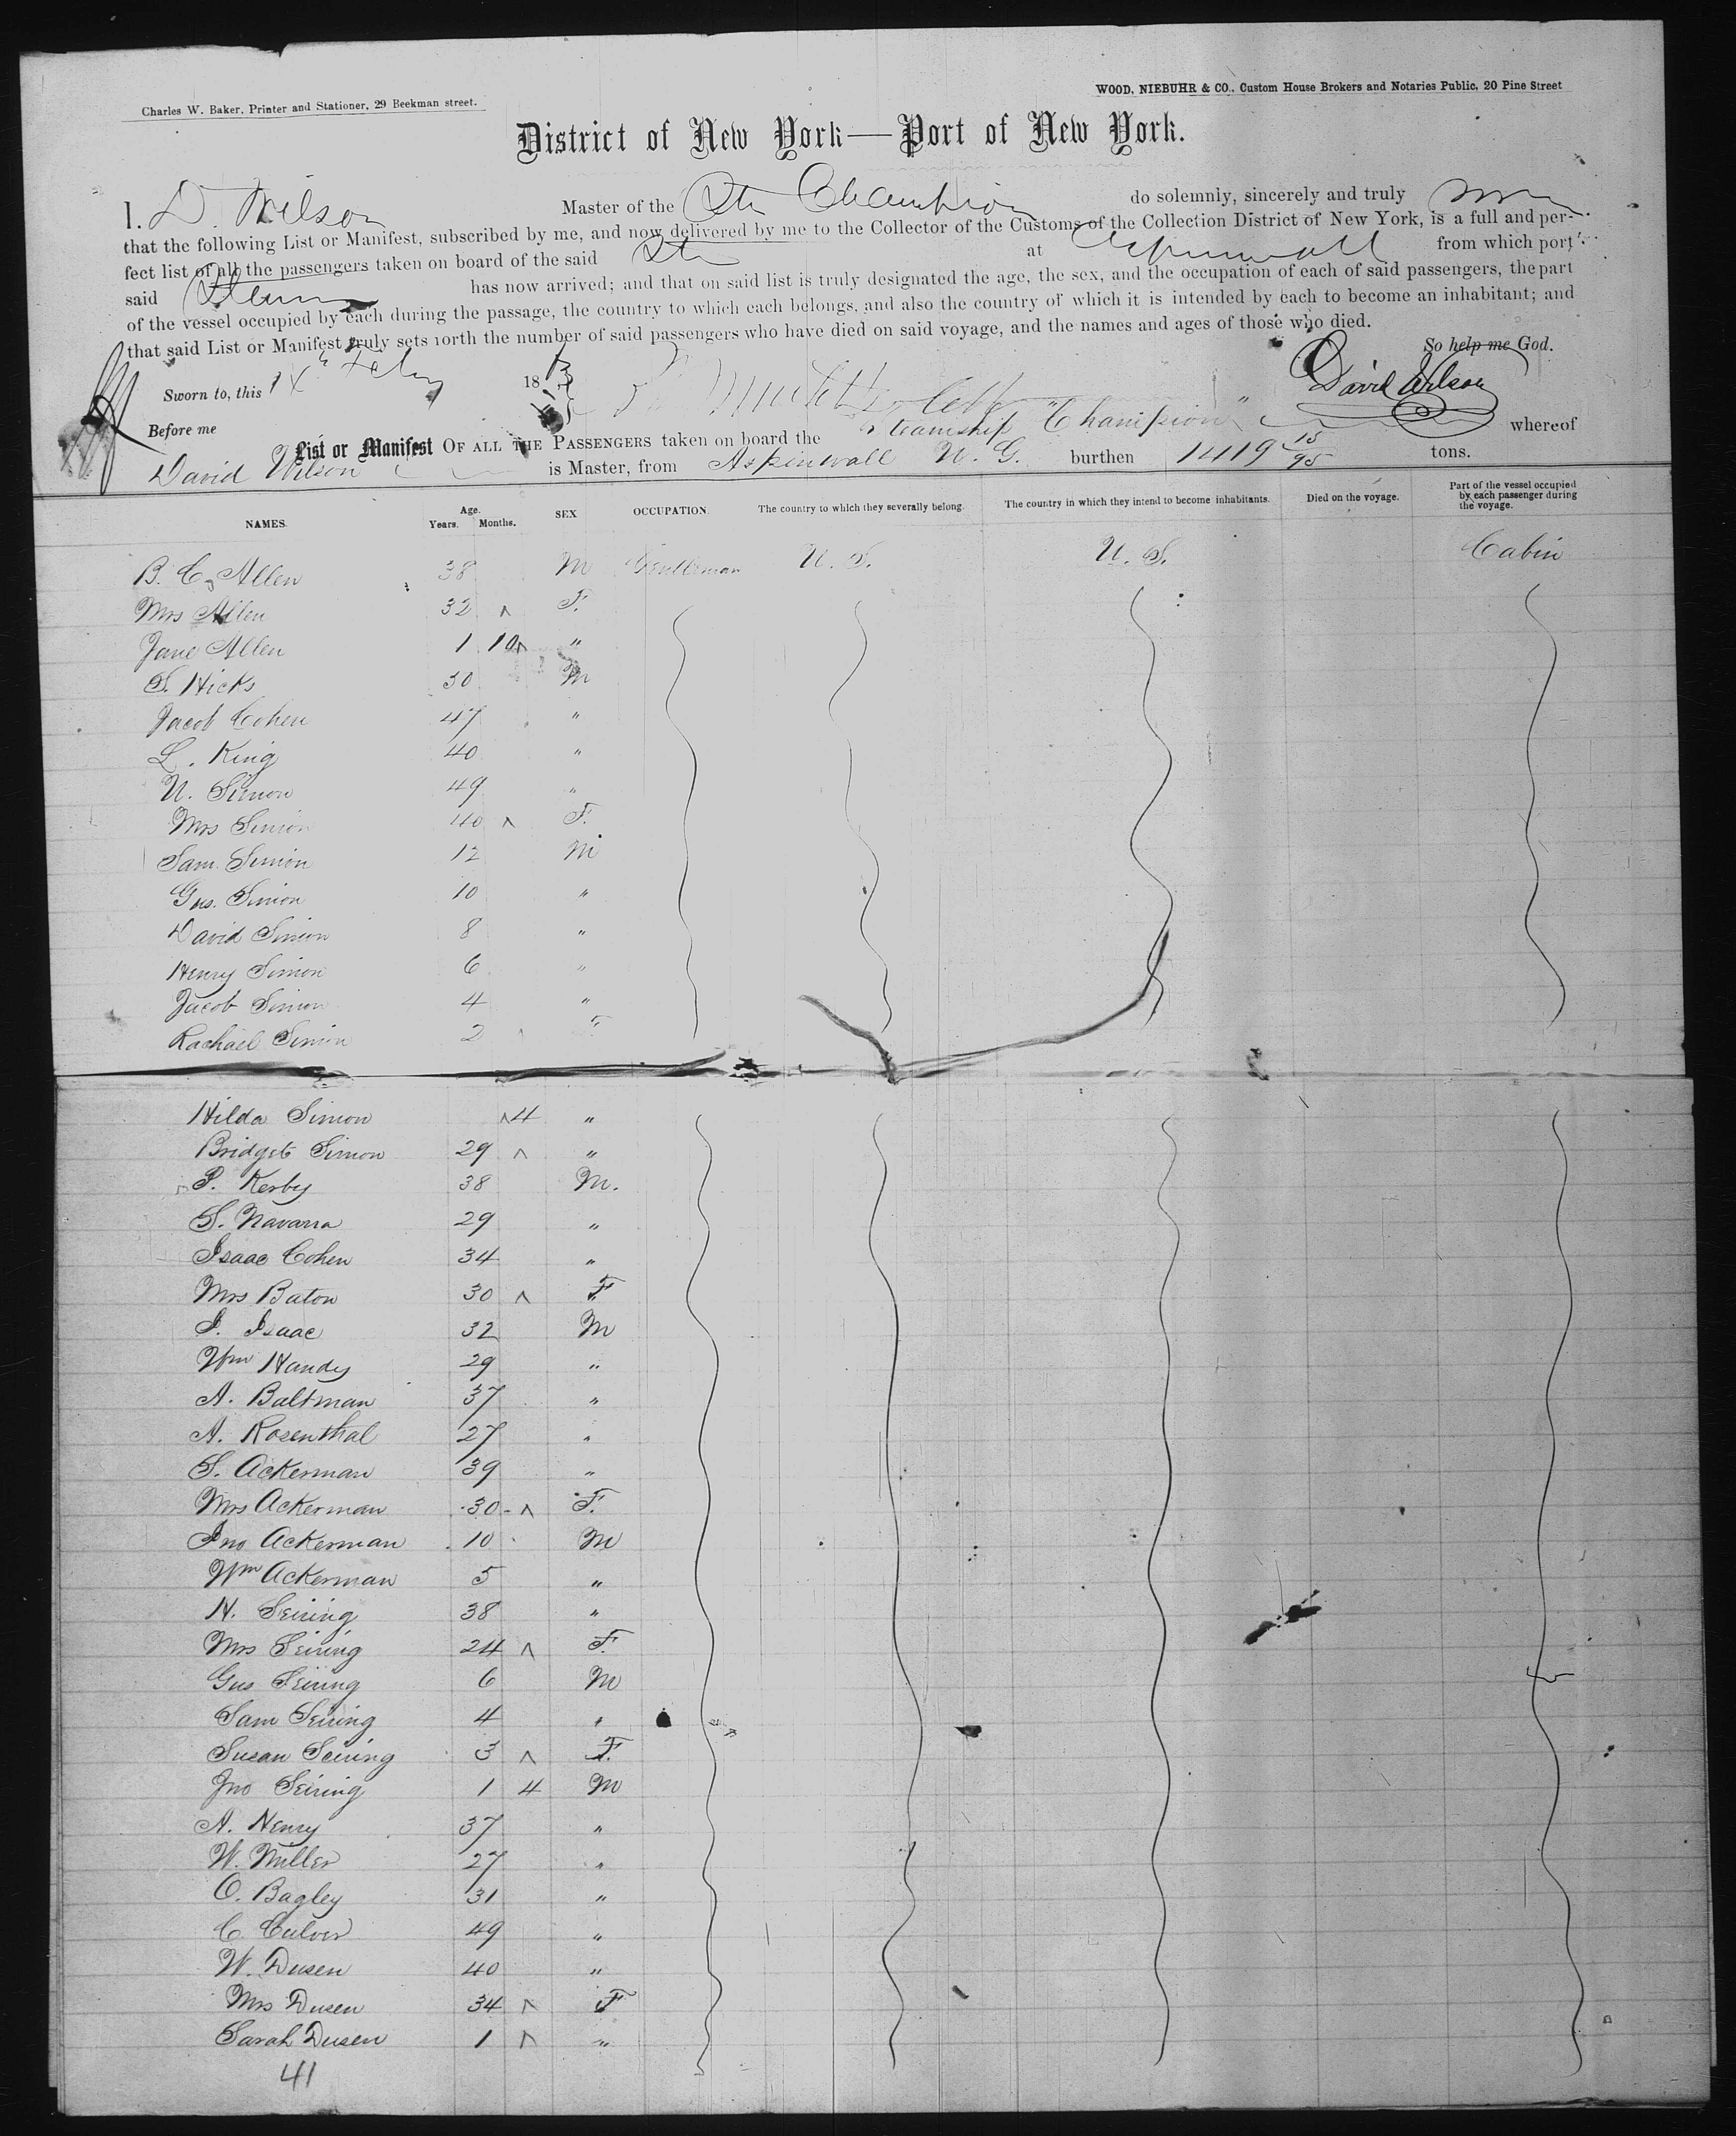 Charles W. Baker, Printer and Stationer, 29 Beekman street.
WOOD, NIEBUHR & CO., Custom House Brokers and Notaries Public, 20 Pine Street
District of New York—Port of New York.
I, D. Wilson Master of the Str Champion do solemnly, sincerely and truly
that the following List or Manifest, subscribed by me, and now delivered by me to the Collector of the Customs of the Collection District of New York, is a full and per-
fect list of all the passengers taken on board of the said Str at Aspinwall from which port
said Steamer has now arrived; and that on said list is truly designated the age, the sex, and the occupation of each of said passengers, the part
of the vessel occupied by each during the passage, the country to which each belongs, and also the country of which it is intended by each to become an inhabitant; and
that said List or Manifest truly sets forth the number of said passengers who have died on said voyage, and the names and ages of those who died.
So help me God.
Sworn to, this 18
David Wilson
Before me
List or Manifest OF ALL THE PASSENGERS taken on board the Steamship "Champion" whereof
David Wilson is Master, from Aspinwall N. G. burthen 1419 15/95 tons.
NAMES. Age. Years. Months. SEX OCCUPATION. The country to which they severally belong. The country in which they intend to become inhabitants. Died on the voyage. Part of the vessel occupied by each passenger during the voyage.
B. C. Allen 38 M Gentleman U. S. U. S. Cabin
Mrs Allen 32 F.
Jane Allen 1 10 "
S. Hicks 30 M
Jacob Cohen 47 "
L. King 40 "
N. Simon 49 "
Mrs Simon 40 F.
Sam. Simon 12 M
Gus. Simon 10 "
David Simon 8 "
Henry Simon 6 "
Jacob Simon 4 "
Rachael Simon 2 F
Hilda Simon 4 "
Bridget Simon 29 "
P. Kerby 38 M.
S. Navarra 29 "
Isaac Cohen 34 "
Mrs Baton 30 F
I. Isaac 32 M
Wm Handy 29 "
A. Baltman 37 "
A. Rosenthal 27 "
S. Ackerman 39 "
Mrs Ackerman 30 F.
Jno Ackerman 10 M
Wm Ackerman 5 "
H. Seiring 38 "
Mrs Seiring 24 F.
Gus Seiring 6 M
Sam Seiring 4 "
Susan Seiring 3 F.
Jno Seiring 1 4 M
A. Henry 37 "
W. Miller 27 "
O. Bagley 31 "
C. Culver 49 "
W. Dusen 40 "
Mrs Dusen 34 F
Sarah Dusen 1 "
41